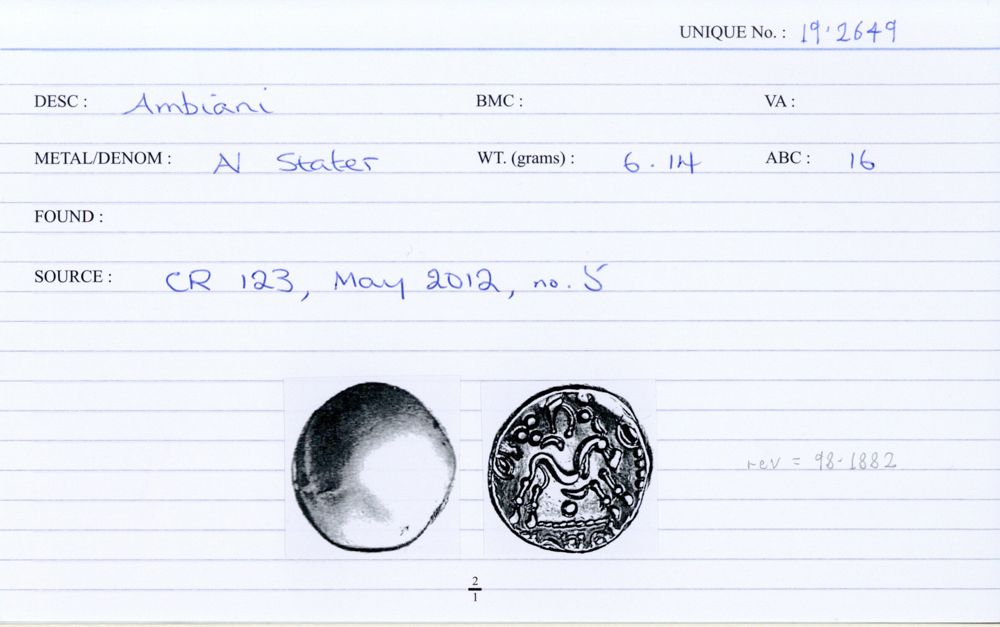 UNIQUE No. : 19.2649
DESC : Ambiani BMC : VA :
METAL/DENOM : N Stater WT. (grams) : 6.14 ABC : 16
FOUND :
SOURCE : CR 123, May 2012, no. 5
rev = 98.1882
2
1